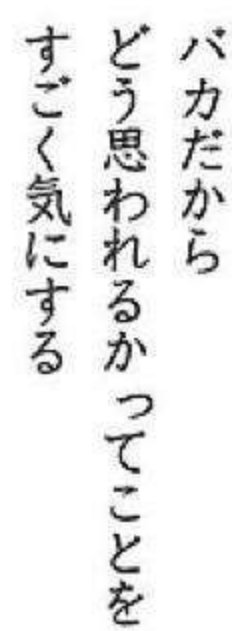 バカだから
どう思われるかってことを
すごく気にする